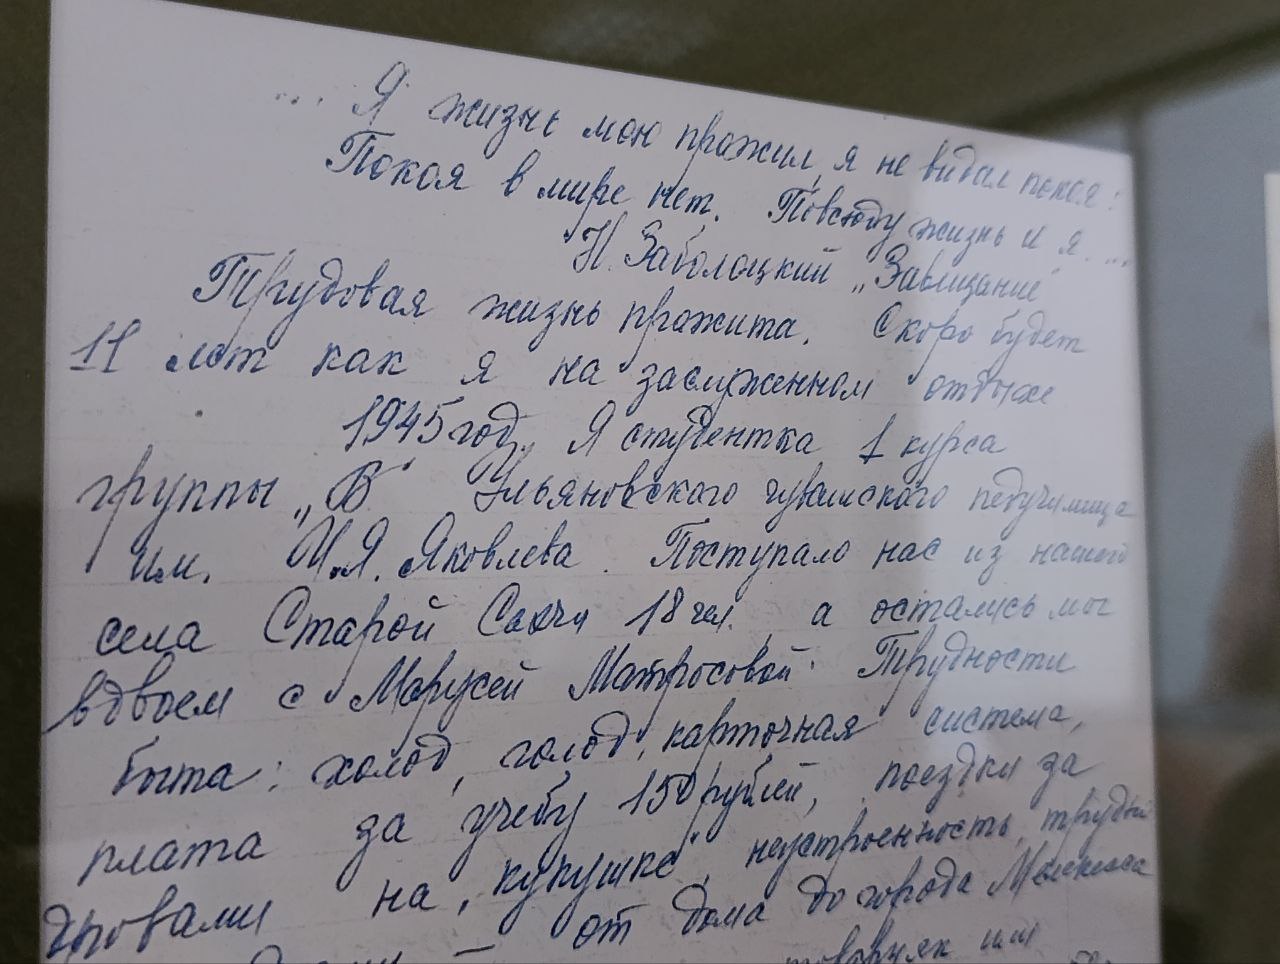 ... Я жизнь мою прожил, я не видал покоя:
Покоя в мире нет. Повсюду жизнь и я. ...
Н. Заболоцкий „Завещание“
Трудовая жизнь прожита. Скоро будет
11 лет как я на заслуженном отдыхе
1945 год. Я студентка 1 курса
группы „В“ Ульяновского чувашского педучилища
им. И.Я. Яковлева. Поступало нас из нашего
села Старой Сахчи 18 чел. а остались мы
вдвоем с Марусей Матросовой. Трудности
быта: холод, голод, карточная система,
плата за учебу 150 рублей, поездки за
дровами на „кукушке“, неустроенность, трудный
от дома до города Мелекесса
или